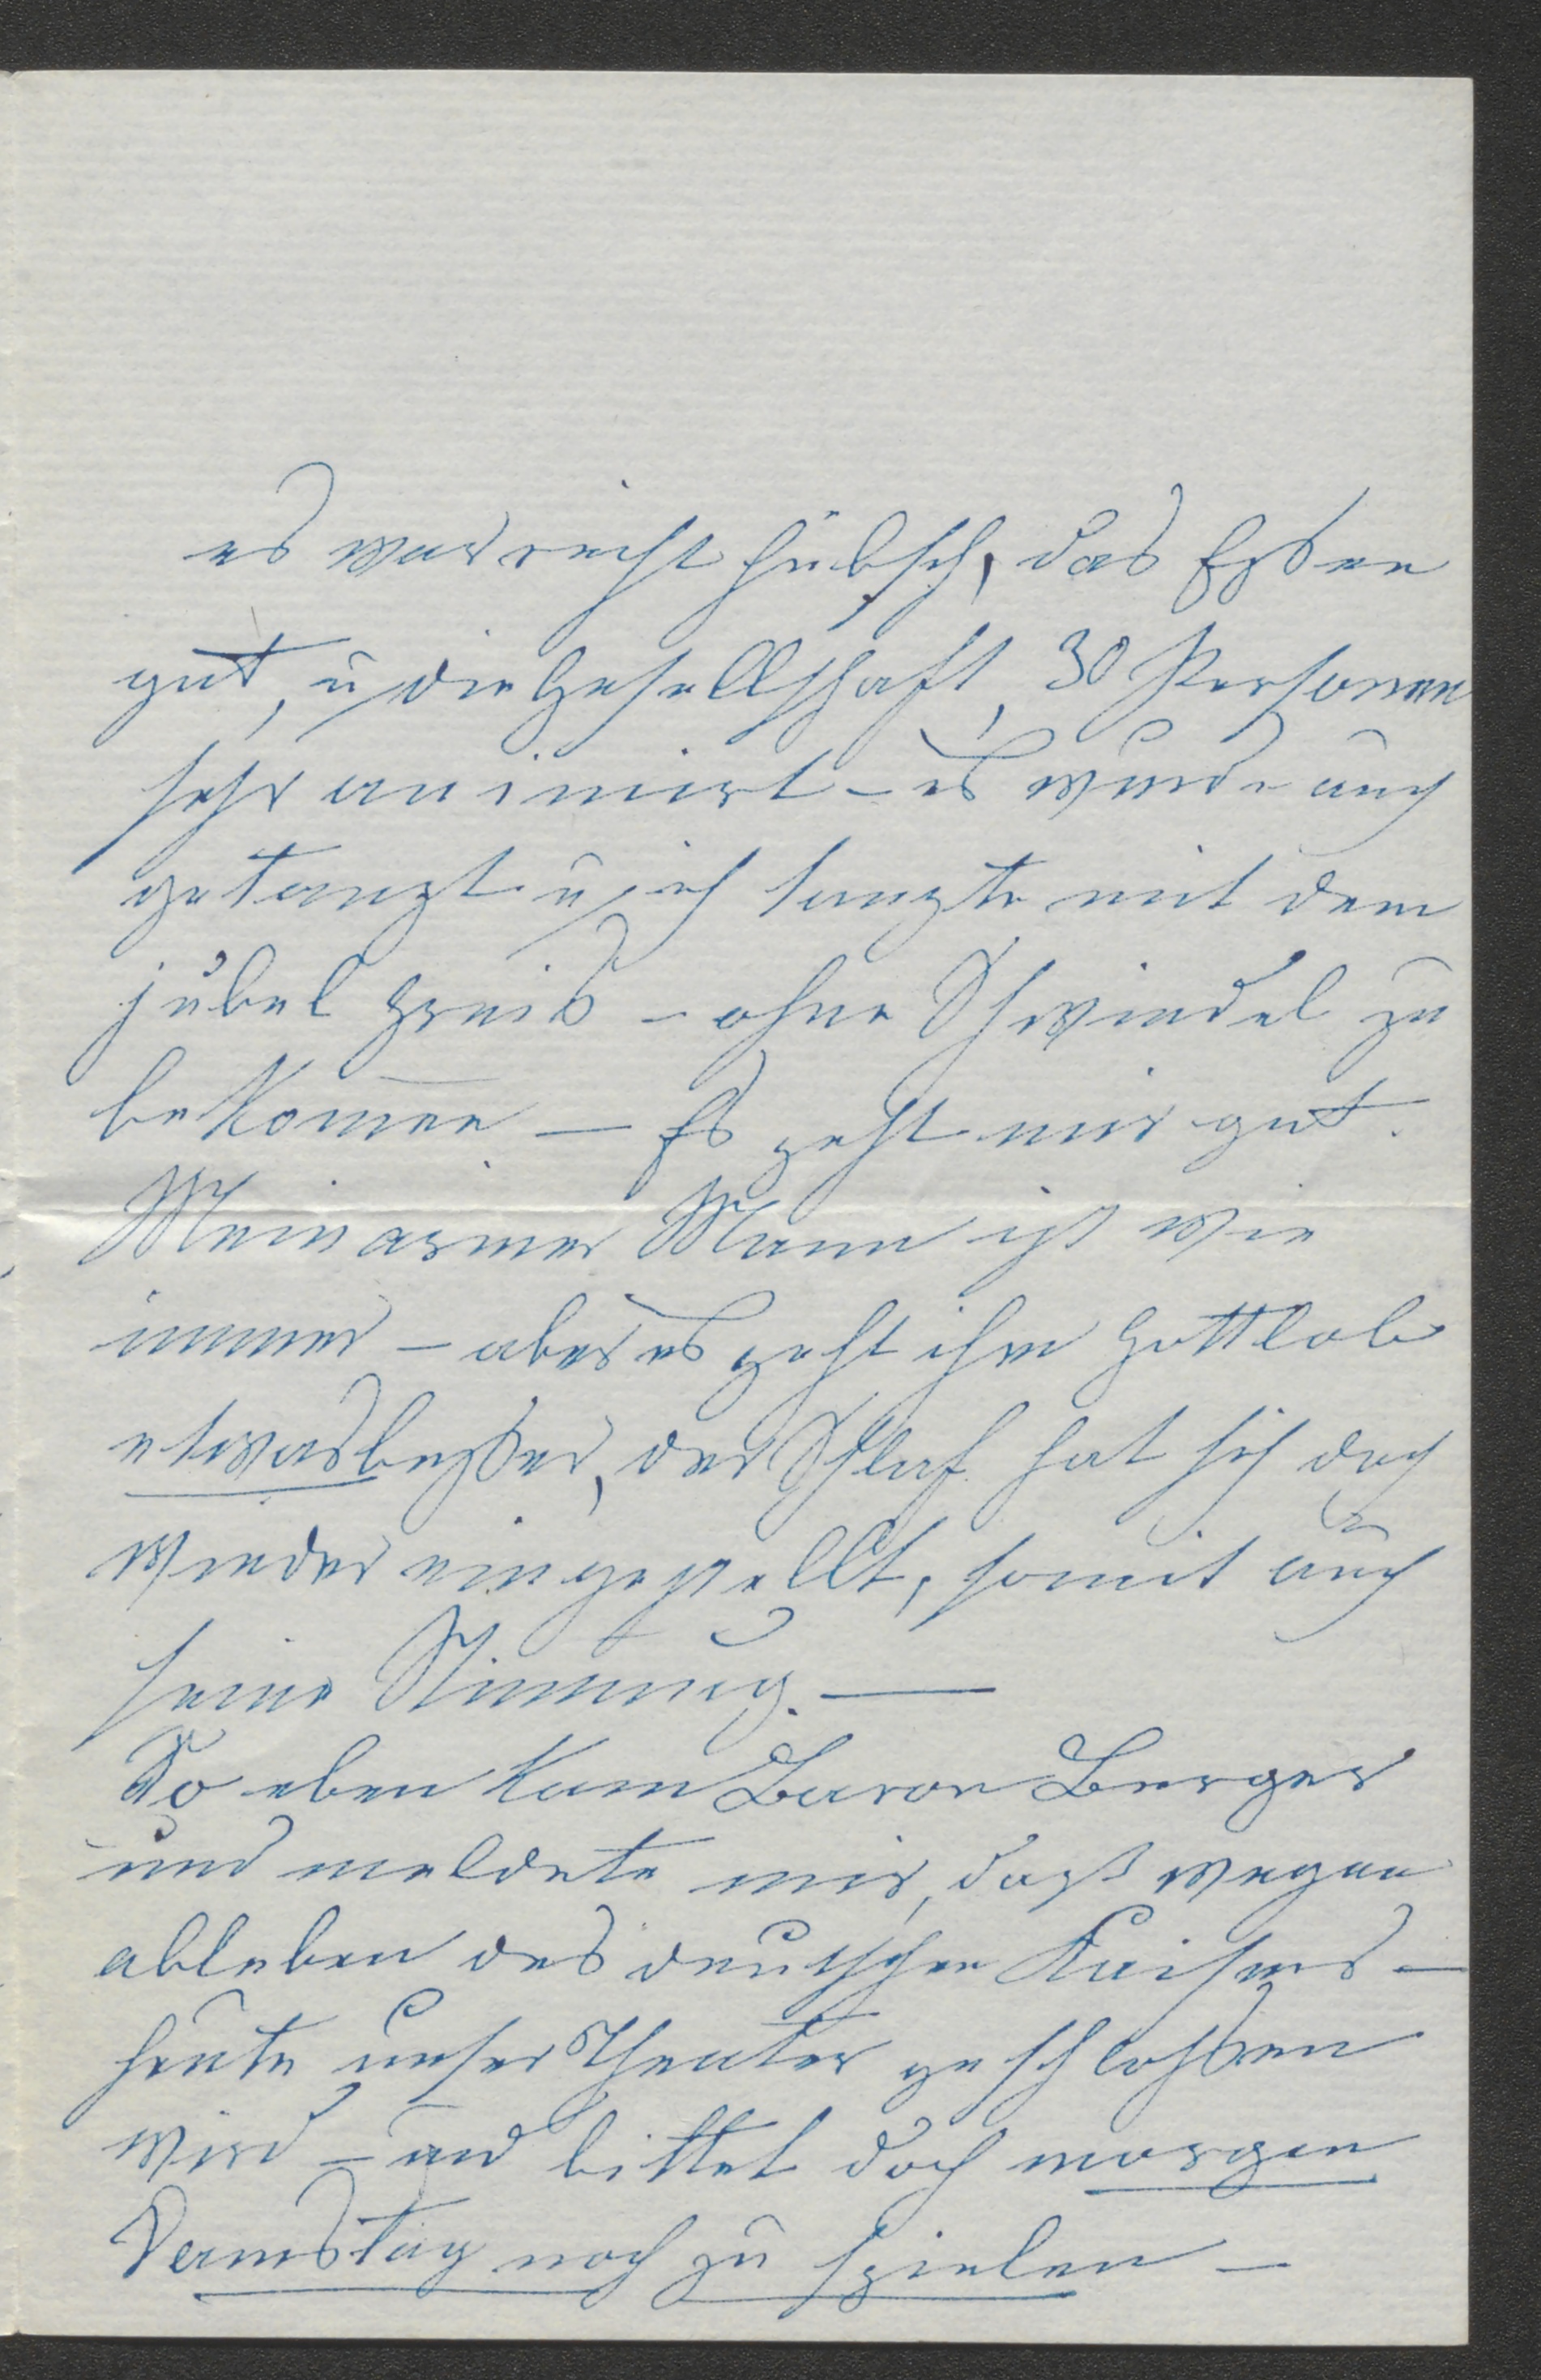 es war recht hübsch, das Essen
gut, u die Gesellschaft, 30 Personen
sehr animirt – es wurde auch
getanzt u ich tanzte mit dem
jubel Greis – ohne Schwindel zu
bekom̄en – Es geht mir gut.
Mein armer Mann ist wie
immer – aber es geht ihm Gottlob
etwas besser, der Schlaf hat sich doch
wieder eingestellt, somit auch
seine Stimmung. —
So eben kam Baron Berger
und meldete mir, dass wegen
ableben des deutschen Kaisers –
heute unser Theater geschlossen
wird – und bittet doch morgen
Samstag noch zu spielen –